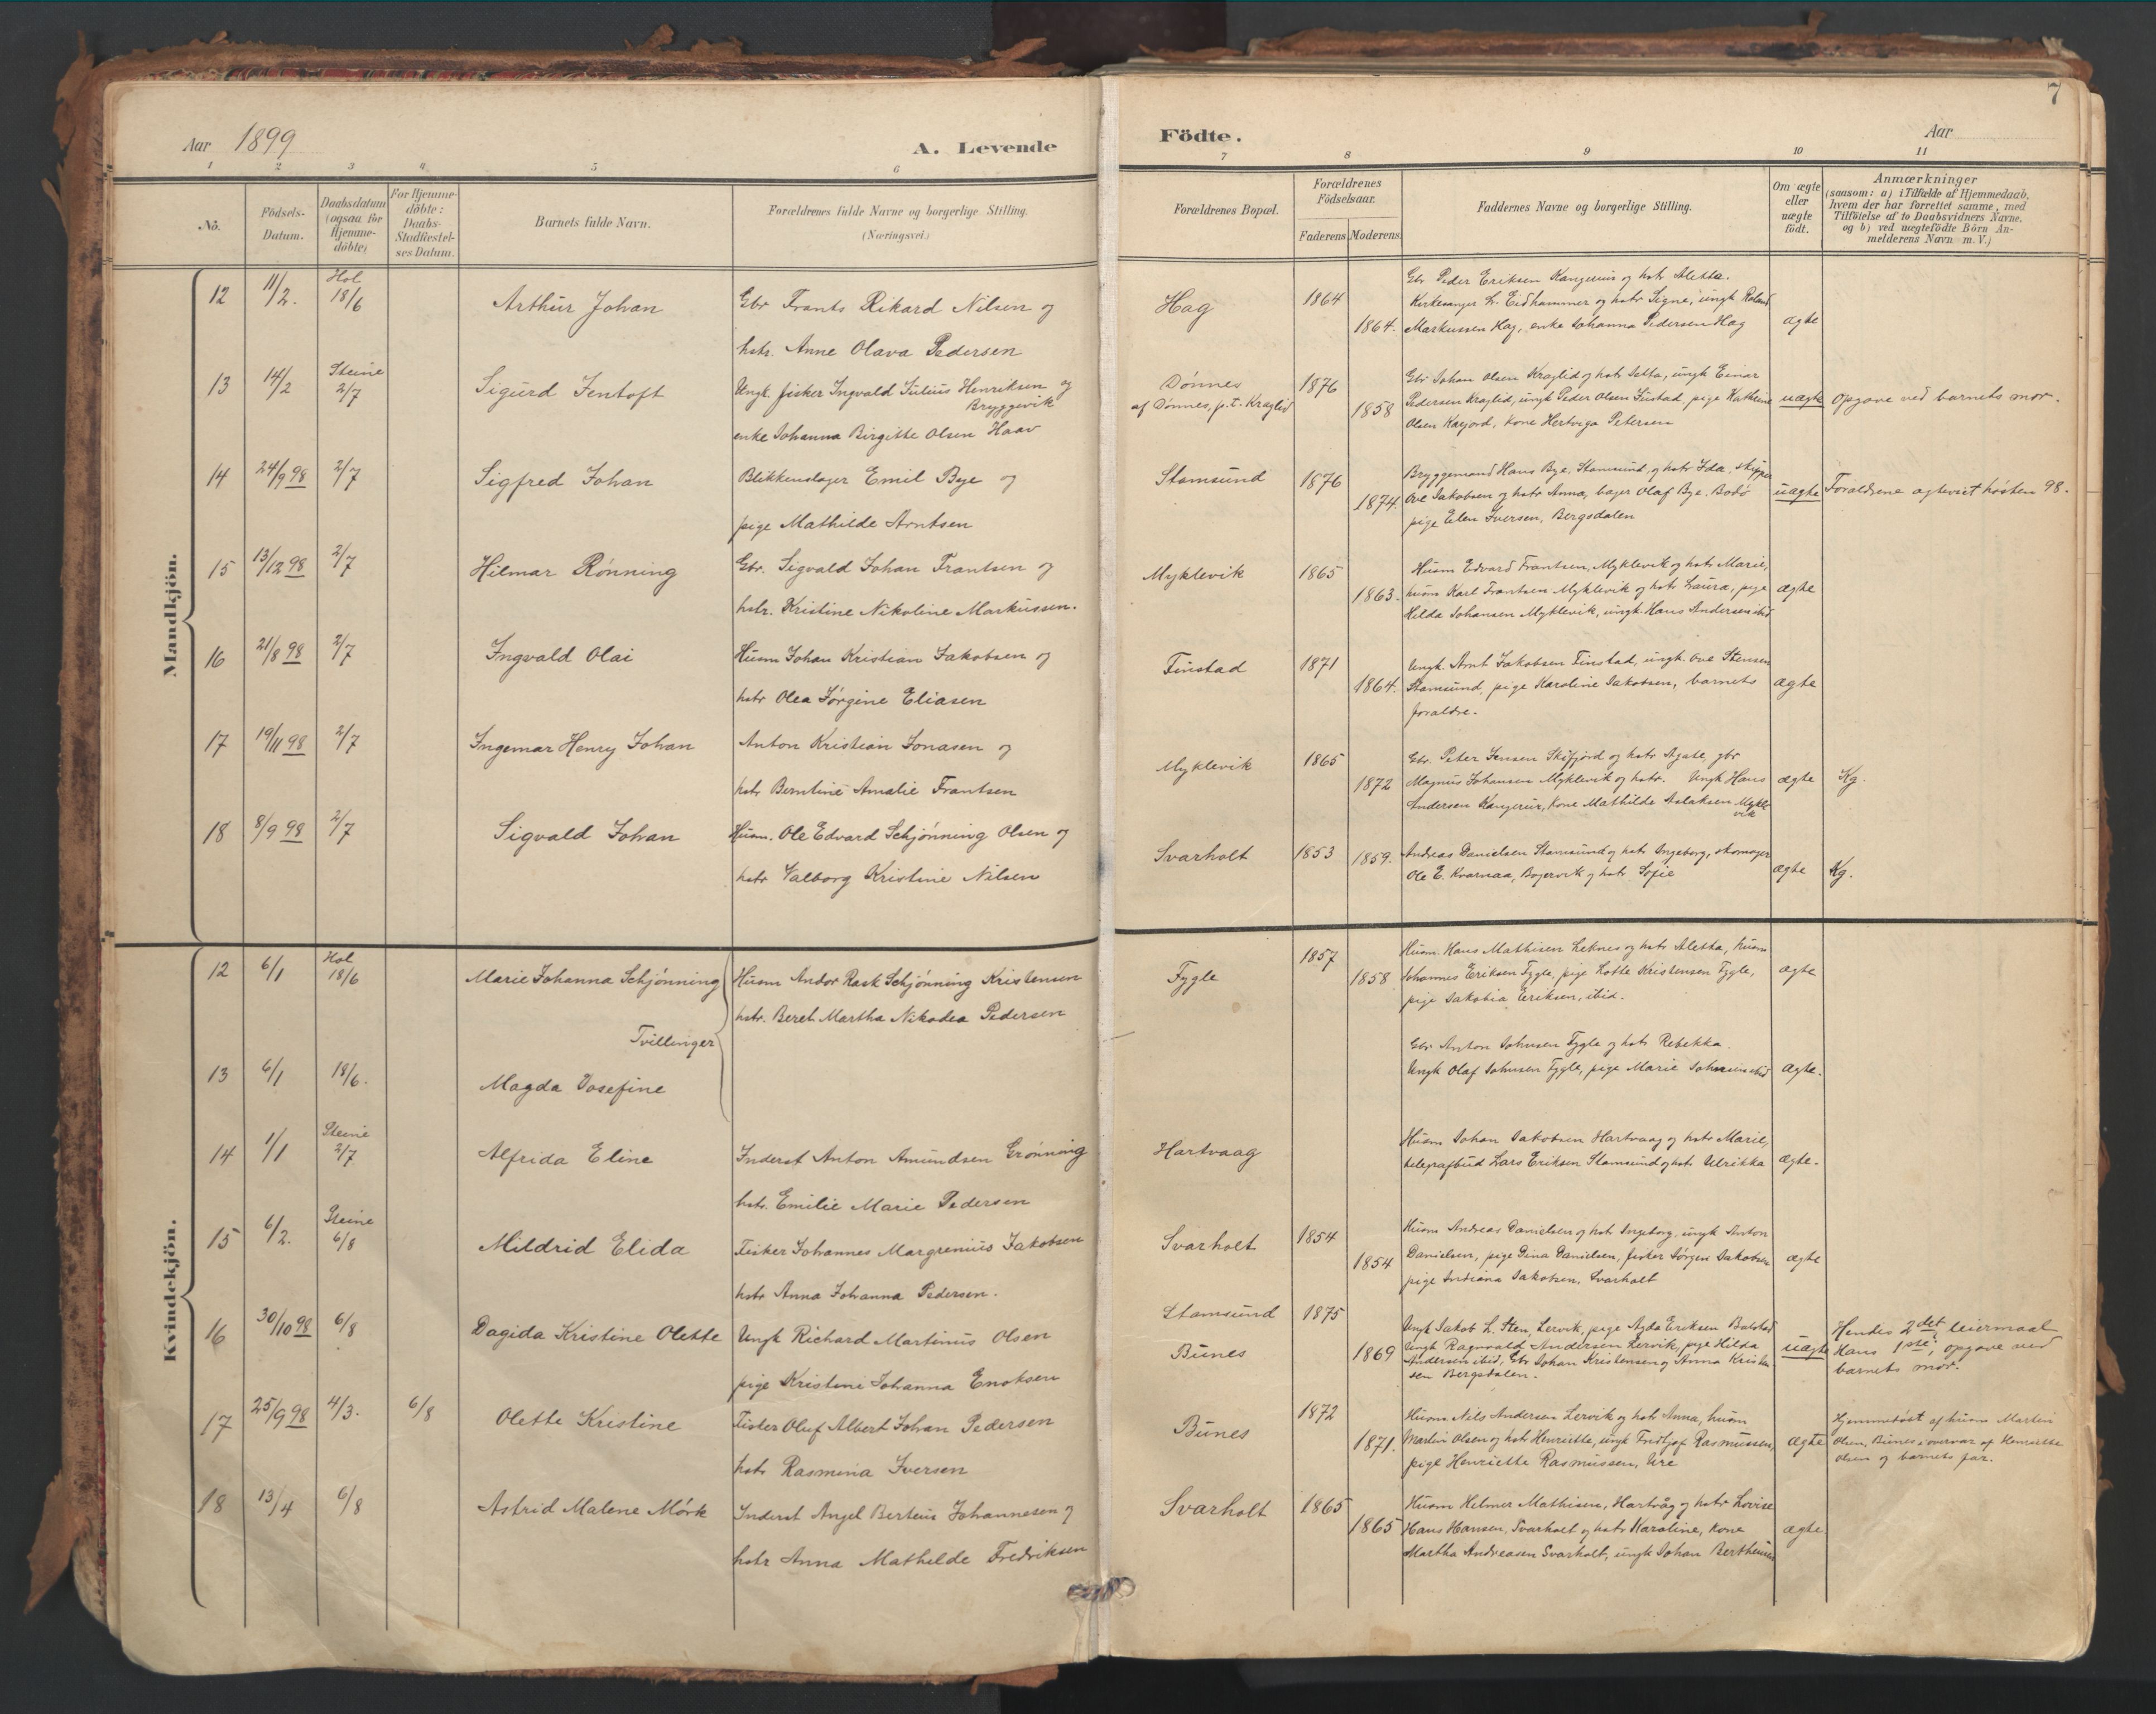 7
Aar 1899
A. Levende
Födte.
Aar
1 2 3 4 5 6 7 8 9 10 11
No.
Födsels-Datum.
Daabsdatum (ogsaa for Hjemme-döbte)
For Hjemme-döbte: Daabs-Stadfæstel-ses Datum.
Barnets fulde Navn.
Forældrenes fulde Navne og borgerlige Stilling. (Næringsvei.)
Forældrenes Bopæl.
Forældrenes Födselsaar.
Faderens Moderens
Faddernes Navne og borgerlige Stilling.
Om ægte eller uægte födt.
Anmærkninger
(saasom: a) i Tilfælde af Hjemmedaab, hvem der har forrettet samme, med Tilföielse af to Daabsvidners Navne. og b) ved uægtefödte Börn An-melderens Navn m. V.)
Mandkjön.
12 11/2. Hol 18/6 Arthur Johan
Gbr Frants Rikard Nilsen og
hstr. Anne Olava Pedersen
Hag 1864 1864.
Gbr Peder Eriksen Kangerur og hstr Aletta.
Kirkesanger L. Eidhammer og hstr Signe, ungk Roland
Markussen Hag, enke Johanna Pedersen Hag
ægte
13 14/2 Steine 2/7 Sigurd Jentoft
Ungk. fisker Ingvald Julius Henriksen og
Bryggevik
enke Johanna Birgitte Olsen Haav
Dönnes
af Dönnes, p.t. Kraglid 1876 1858
Gbr Johan Olsen Kraglid og hstr Jetta, ungk Einar
Pedersen Kraglid, ungk Peder Olsen Fustad, pige Kathrine
Olsen Kaejord, Kone Hertviga Petersen
uægte Opgave ved barnets mor.
14 24/9 98 2/7 Sigfred Johan
Blikkenslager Emil Bye og
pige Mathilde Arntsen
Stamsund 1876 1874.
Bryggemand Hans Bye, Stamsund, og hstr Ida, skipper
Ove Jakobsen og hstr Anna, bager Olaf Bye. Bodö
pige Elen Iversen, Bergsdalen
uægte Forældrene agteviet hösten 98.
15 13/12 98 2/7 Hilmar Rönning
Gbr. Sigvald Johan Frantsen og
hstr. Kristine Nikoline Markussen.
Myklevik 1865 1863.
Husm Edvard Frantsen, Myklevik og hstr Marie,
husm Karl Frantsen Myklevik og hstr Laura, pige
Hilda Johansen Myklevik, ungk. Hans Andersen ibid
ægte
16 21/8 98 2/7 Ingvald Olai
Husm Johan Kristian Jakobsen og
hstr Olea Jörgine Eliasen
Finstad 1871 1864.
Ungk. Arnt Jakobsen Finstad, ungk. Ove Stensen
Stamsund, pige Karoline Jakobsen, barnets
forældre.
ægte
17 19/11 98 2/7 Ingemar Henry Johan
Anton Kristian Jonasen og
hstr Berntine Amalie Frantsen
Myklevik 1865 1872
Gbr. Peter Jensen Skifjord og hstr Agate, gbr
Magnus Johansen Myklevik og hstr. Ungk Hans
Andersen Kangerur, Kone Mathilde Aslaksen Mykle
vik
ægte Kg.
18 8/9 98 2/7 Sigvald Johan
Husm. Ole Edvard Schjönning Olsen og
hstr Valborg Kristine Nilsen
Svarholt 1853 1859.
Andreas Danielsen Stamsund og hstr Ingeborg, skomager
Ole E. Kvarnaa, Bøjervik og hstr Sofie
ægte Kg.
Kvindekjön.
12 6/1 Hol 18/6 Marie Johanna Schjönning
Husm Andor Rask Schjönning Kristensen
hstr. Beret Martha Nikodea Pedersen
Tvillinger
Fygle 1857 1858
Husm Hans Mathisen Leknes og hstr Aletha, husm
Johannes Eriksen Fygle, pige Lotte Kristensen Fygle,
pige Jakobia Eriksen, ibid.
ægte
13 6/1 18/6. Magda Josefine
Gbr Anton Johnsen Fygle og hstr Rebekka.
Ungk Olaf Johnsen Fygle, pige Marie Johnsen ibid
ægte.
14 1/1 Steine 2/7 Alfrida Eline
Inderst Anton Amundsen Grönning
hstr. Emilie Marie Pedersen
Hartvaag
Husm Johan Jakobsen Hartvaag og hstr Marie,
telegrafbud Lars Eriksen Stamsund og hstr Ulrikka
ægte.
15 6/2. Steine 6/8 Mildrid Elida
Fisker Johannes Margrenius Jakobsen
hstr Anna Johanna Pedersen.
Svarholt 1854 1854
Husm Andreas Danielsen og hstr Ingeborg, ungk Anton
Danielsen, pige Dina Danielsen, fisker Jörgen Jakobsen
pige Indiana Jakobsen, Svarholt
ægte
16 30/10 98 6/8 Dagida Kristine Olette
Ungk Richard Martinus Olsen
pige Kristine Johanna Enoksen
Stamsund 1875
Bunes 1869
Ungk Jakob L. Sten, Lervik, pige Agda Eriksen Balstad
Ungk Ragnvald Andersen Lervik, pige Hilda
Andersen ibid, Gbr Johan Kristensen og Anna Kristen
sen Bergsdalen.
uægte
Hendes 2det leiermaal
Hans 1ste, opgave ved
barnets mor.
17 25/9 98 4/3. 6/8 Olette Kristine
Fisker Oluf Albert Johan Pedersen
hstr Rasmina Iversen
Bunes 1872 1871.
Husm. Nils Andersen Lervik og hstr Anna, husm
Martin Olsen og hstr Henriette, ungk Fridtjof Rasmussen,
pige Henriette Rasmussen, Ure
ægte
Hjemmedöbt af husm Martin
Olsen, Bunes i overvær af Henriette
Olsen og barnets far.
18 13/4 6/8 Astrid Malene Mörk
Inderst Angel Berteus Johannesen og
hstr Anna Mathilde Fredriksen
Svarholt 1865 1865
Husm Helmer Mathisen, Hartvåg og hstr Lovise
Hans Hansen, Svarholt og hstr Karoline, Kone
Martha Andreasen Svarholt, ungk Johan Bertheusen
ægte